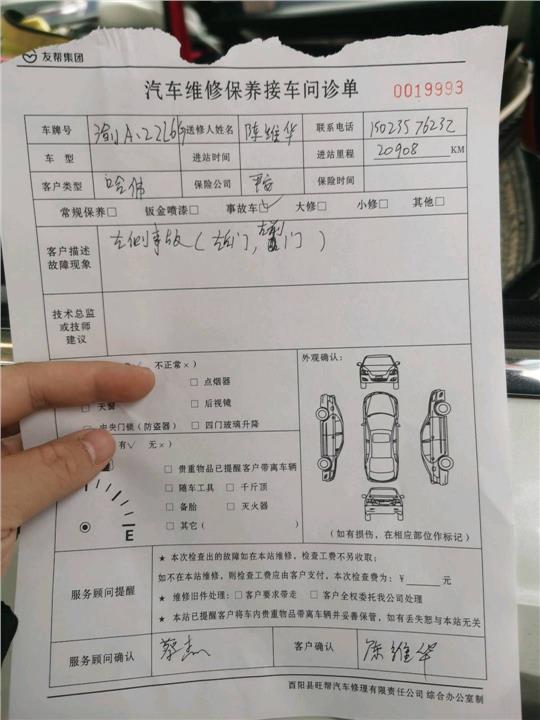 友帮集团
汽车维修保养接车问诊单 0019993
车牌号 渝A·22L66 送修人姓名 陈维华 联系电话 15023576232
车 型 进站时间 进站里程 20908 KM
客户类型 哈佛 保险公司 平安 保险时间
常规保养□ 钣金喷漆□ 事故车☑ 大修□ 小修□ 其他□
客户描述
故障现象
左侧事故(左后门,左前门)
技术总监
或技师
建议
不正常×)
外观确认:
□ 点烟器
□ 天窗 □ 后视镜
中央门锁(防盗器) □ 四门玻璃升降
有√ 无×)
□ 贵重物品已提醒客户带离车辆
□ 随车工具 □ 千斤顶
□ 备胎 □ 灭火器
□ 其它(
E
(如有损伤,在相应部位作标记)
服务顾问提醒
★ 本次检查出的故障如在本站维修,检查工费不另收取;
如不在本站维修,则检查工费应由客户支付,本次检查费为:¥ 元
★ 维修旧件处理:□ 客户要求带走 □ 客户全权委托我公司处理
★ 本站已提醒客户将车内贵重物品带离车辆并妥善保管,如有丢失恕与本站无关
服务顾问确认 蔡杰 客户确认 陈维华
酉阳县旺帮汽车修理有限责任公司 综合办公室制